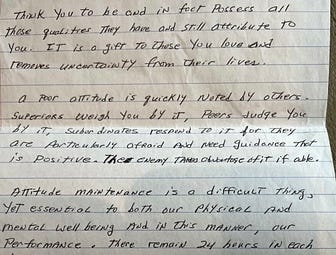 Think You to be and in fact Possess all
those qualities They have and still attribute TO
You. IT is a gift to those You love and
removes uncertainty from their lives.
A Poor attitude is quickly Noted by others.
Superiors weigh You by iT, Peers Judge You
by it, Subordinates respond to it for they
are Particularly afraid and Need guidance that
is Positive. The enemy Takes advantage of it if able.
Attitude maintenance is a difficult Thing,
Yet essential to both our Physical and
mental well being and in this manner, our
Performance. There remain 24 hours in each